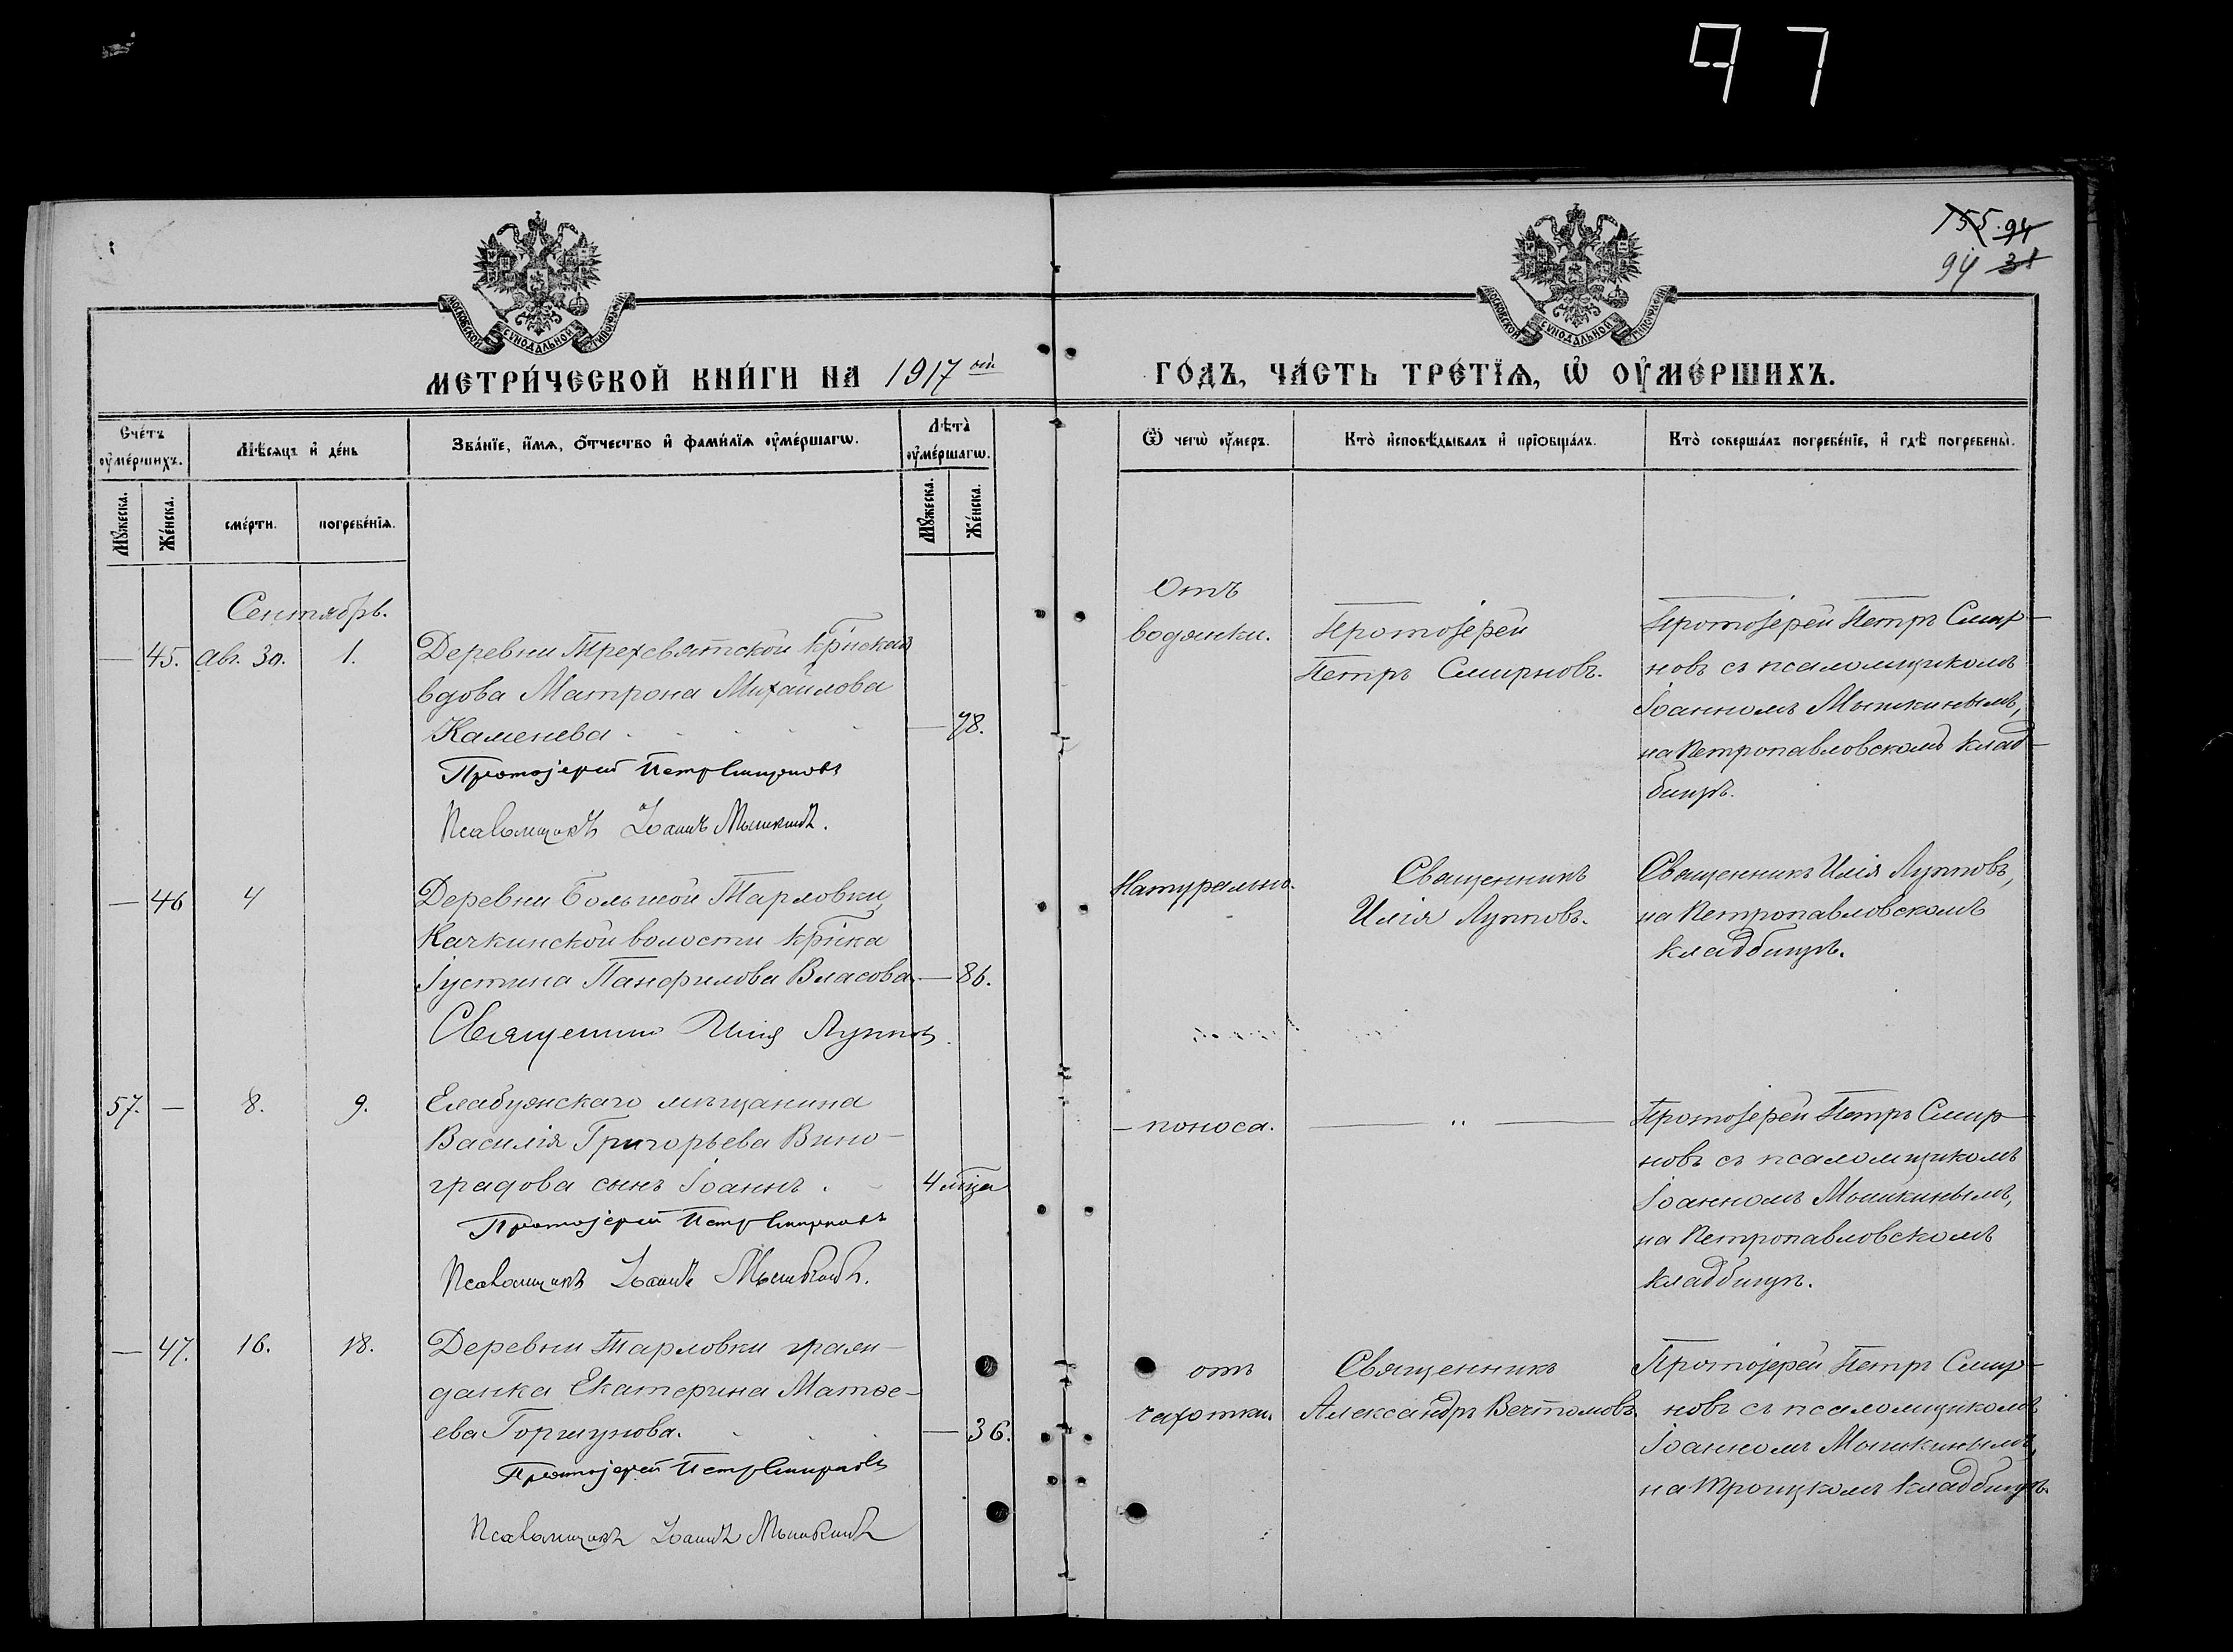 97
155. 94
94 31
МОСКОВСКОЙ СѴНОДАЛЬНОЙ ТИПОГРАФІИ
МОСКОВСКОЙ СѴНОДАЛЬНОЙ ТИПОГРАФІИ
МЕТРИ́ЧЕСКОЙ КНИ́ГИ НА 1917 ый
ГО́ДЪ, ЧА́СТЬ ТРЕ́ТЇѦ, Ѡ҆ ОУ҆МЕ́РШИХЪ.
Сче́тъ оу҆ме́ршихъ.
Мѣ́сяцъ и҆ де́нь
Зва́нїе, и҆́мѧ, ѻ҆́тчество и҆ фами́лїѧ оу҆ме́ршагѡ.
Лѣ́та оу҆ме́ршагѡ.
Ѿ чегѡ̀ оу҆́меръ.
Кто̀ и҆сповѣ́дывалъ и҆ прїѡбща́лъ.
Кто̀ соверша́лъ погребе́нїе, и҆ гдѣ̀ погребены̀.
Мꙋ́жеска.
Же́нска.
сме́рти.
погребе́нїѧ.
Мꙋ́жеска.
Же́нска.
Сентябрь.
— 45. Авг. 30. 1.
Деревни Трехсвятской кр̃нская
вдова Матрона Михайлова
Каменева — 78.
Протоіерей Петръ Смирновъ
Псаломщикъ Іоаннъ Мышкинъ.
Отъ
водянки.
Протоіерей
Петръ Смирновъ.
Протоіерей Петръ Смир-
новъ съ псаломщикомъ
Іоанномъ Мышкинымъ,
на Петропавловскомъ клад-
бищѣ.
— 46 4
Деревни Большой Тарловки,
Качкинской волости кр̃нка
Іустина Панфилова Власова. — 86.
Священникъ Илія Лупповъ.
Натурально.
Священникъ
Илія Лупповъ.
Священникъ Илія Лупповъ,
на Петропавловскомъ
кладбищѣ.
57. — 8. 9.
Елабужскаго мѣщанина
Василія Григорьева Вино-
градова сынъ Іоаннъ. 4 мц̃а
Протоіерей Петръ Смирновъ
Псаломщикъ Іоаннъ Мышкинъ.
— поноса.
— " —
Протоіерей Петръ Смир-
новъ съ псаломщикомъ
Іоанномъ Мышкинымъ,
на Петропавловскомъ
кладбищѣ.
— 47. 16. 18.
Деревни Тарловки граж-
данка Екатерина Матѳе-
ева Горшунова. — 36.
Протоіерей Петръ Смирновъ
Псаломщикъ Іоаннъ Мышкинъ
отъ
чахотки.
Священникъ
Александръ Вечтомовъ.
Протоіерей Петръ Смир-
новъ съ псаломщикомъ
Іоанномъ Мышкинымъ,
на Троицкомъ кладбищѣ.